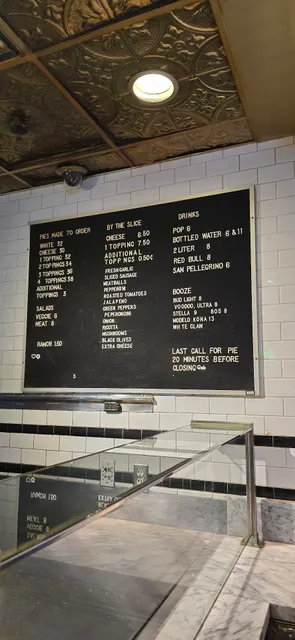 PIES MADE TO ORDER
WHITE 32
CHEESE 30
1 TOPPING 32
2 TOPPINGS 34
3 TOPPINGS 36
4 TOPPINGS 38
ADDITIONAL
TOPPINGS 3
SALADS
VEGGIE 6
MEAT 8
RANCH 1.50
BY THE SLICE
CHEESE 6.50
1 TOPPING 7.50
ADDITIONAL
TOPPNGS 0.50¢
FRESH GARLIC
SLICED SAUSAGE
MEATBALLS
PEPPERONI
ROASTED TOMATOES
JALAPENO
GREEN PEPPERS
PEPERONCINI
ONION
RICOTTA
MUSHROOMS
BLACK OLIVES
EXTRA CHEESE
DRINKS
POP 6
BOTTLED WATER 6 & 11
2 LITER 8
RED BULL 8
SAN PELLEGRINO 6
BOOZE
BUD LIGHT 8
VOODOO, ULTRA 8
STELLA 9 805 8
MODELO KONA 13
WHITE CLAW
LAST CALL FOR PIE
20 MINUTES BEFORE
CLOSING